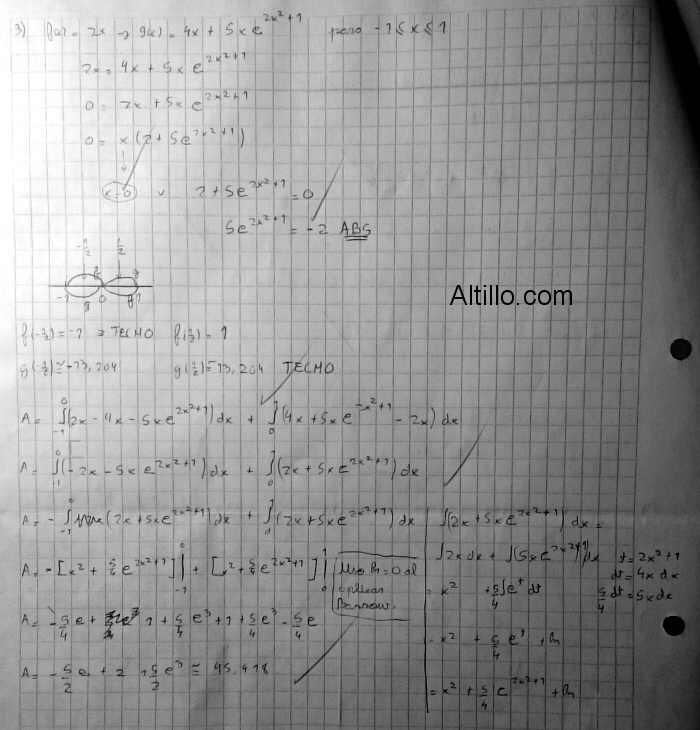 3) f(x) = 2x → g(x) = 4x + 5x e^{2x²+1} para -1 ≤ x ≤ 1
2x = 4x + 5x e^{2x²+1}
0 = 2x + 5x e^{2x²+1}
0 = x (2 + 5e^{2x²+1})
x = 0 v 2 + 5e^{2x²+1} = 0
5e^{2x²+1} = -2 ABS
-1/2 1/2
f g
-1 0 1
g f
Altillo.com
f(-1/2) = -1 → TECHO f(1/2) = 1
g(-1/2) ≅ -13,204 g(1/2) ≅ 13,204 TECHO
A = ∫_{-1}^{0} (2x - 4x - 5x e^{2x²+1}) dx + ∫_{0}^{1} (4x + 5x e^{2x²+1} - 2x) dx
A = ∫_{-1}^{0} (-2x - 5x e^{2x²+1}) dx + ∫_{0}^{1} (2x + 5x e^{2x²+1}) dx
A = - ∫_{-1}^{0} (2x + 5x e^{2x²+1}) dx + ∫_{0}^{1} (2x + 5x e^{2x²+1}) dx
A = - [x² + 5/4 e^{2x²+1}] |_{-1}^{0} + [x² + 5/4 e^{2x²+1}] |_{0}^{1}
k = 0 al
aplicar
Barrow.
A = -5/4 e + 1 + 5/4 e³ + 1 + 5/4 e³ - 5/4 e
A = -5/2 e + 2 + 5/2 e³ ≅ 45,418
∫(2x + 5x e^{2x²+1}) dx =
∫2x dx + ∫(5x e^{2x²+1}) dx t = 2x²+1
dt = 4x dx
= x² + 5/4 ∫e^t dt 5/4 dt = 5x dx
= x² + 5/4 e^t + k
= x² + 5/4 e^{2x²+1} + k